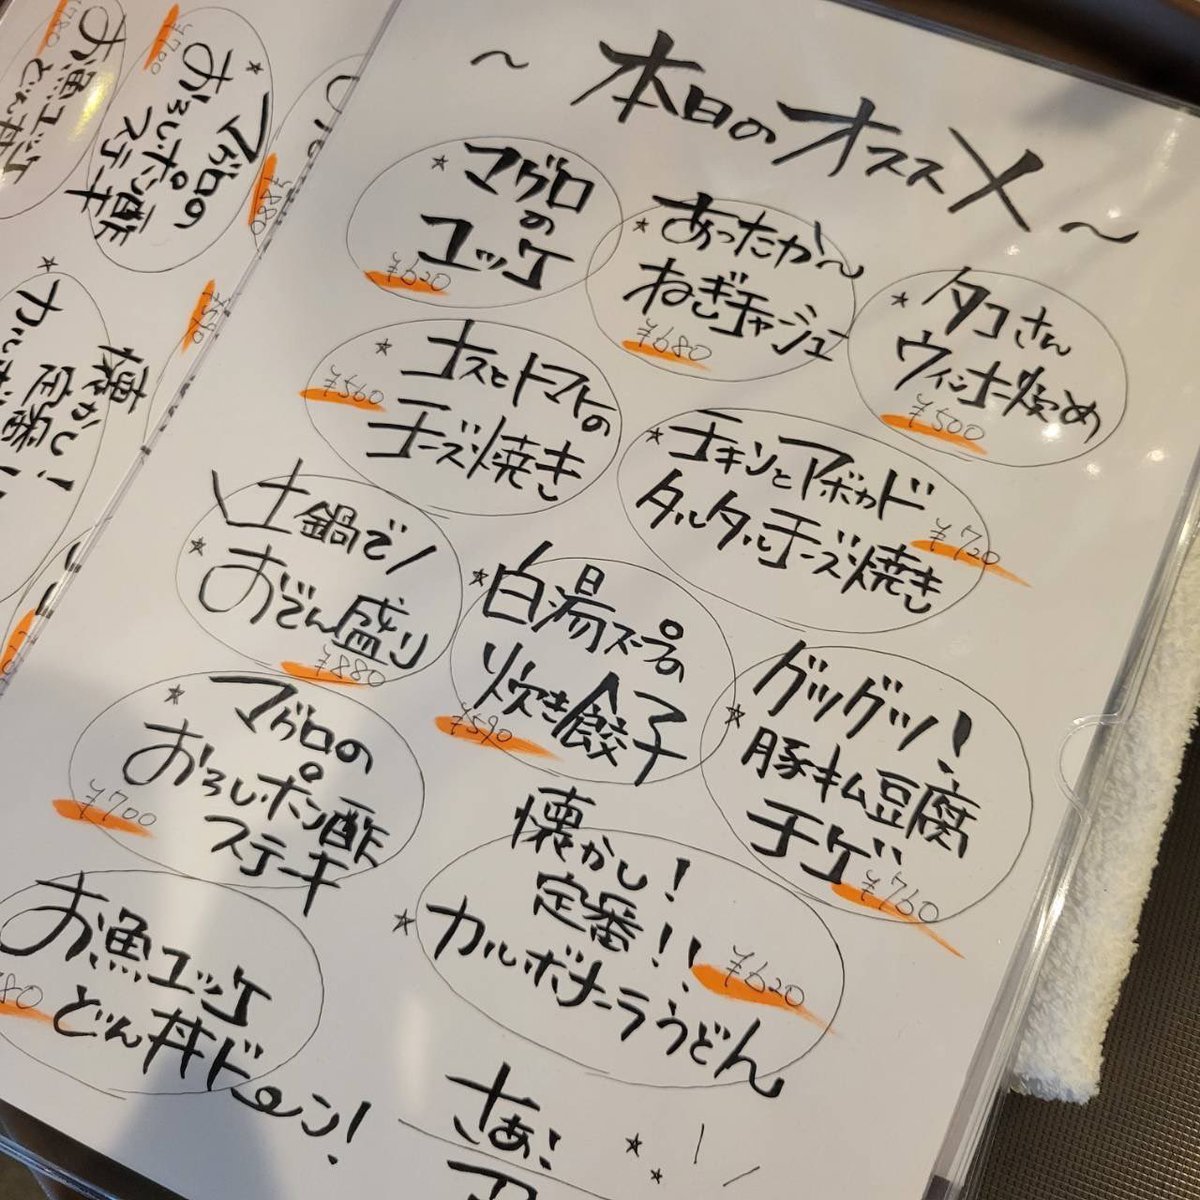 ～本日のオススメ～
マグロ
の
ユッケ
¥620
あったか～
ねぎチャーシュー
¥680
タコさん
ウィンナー炒め
¥500
ナスとトマトの
チーズ焼き
¥560
チキンとアボカド
タルタルチーズ焼き
¥720
\土鍋で/
おでん盛り
¥880
白湯スープの
炊き餃子
¥590
グツグツ!
豚キム豆腐
チゲ
¥760
マグロの
おろしポン酢
ステーキ
¥700
懐かし!
定番!!
カルボナーラうどん
¥620
お魚ユッケ
どん丼ドーン!
80
さぁ!
マグロの
おろしポン酢
ステーキ
¥700
お魚ユッケ
どん丼
¥780
¥880
¥590
懐かし!
定番!